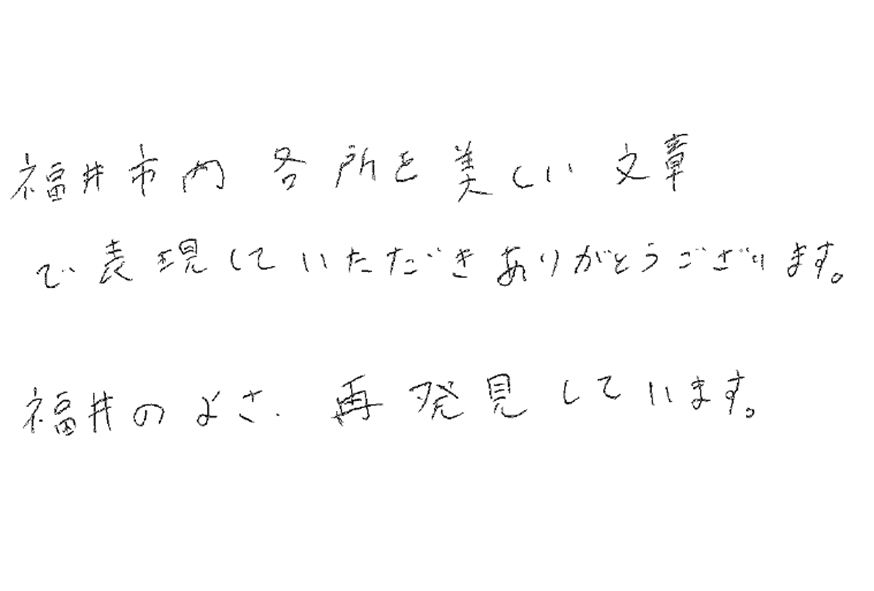 福井市内各所を美しい文章
で表現していただきありがとうございます。
福井のよさ、再発見しています。